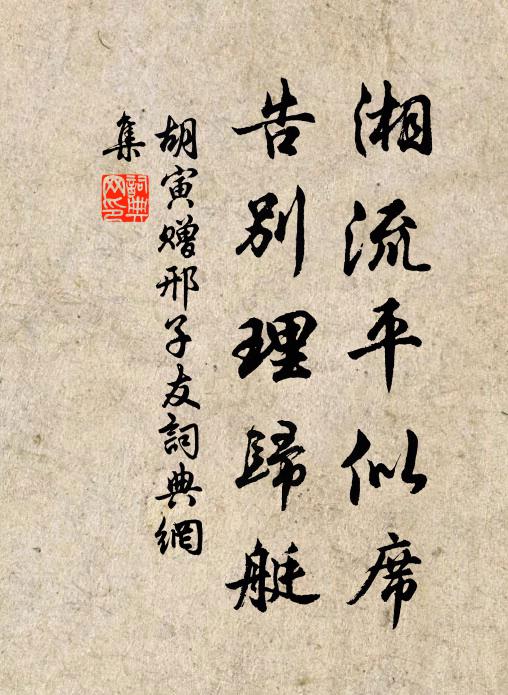 湘流平似席
告別理歸艇
胡寅赠邢子友詞典網
集
詞典
网印